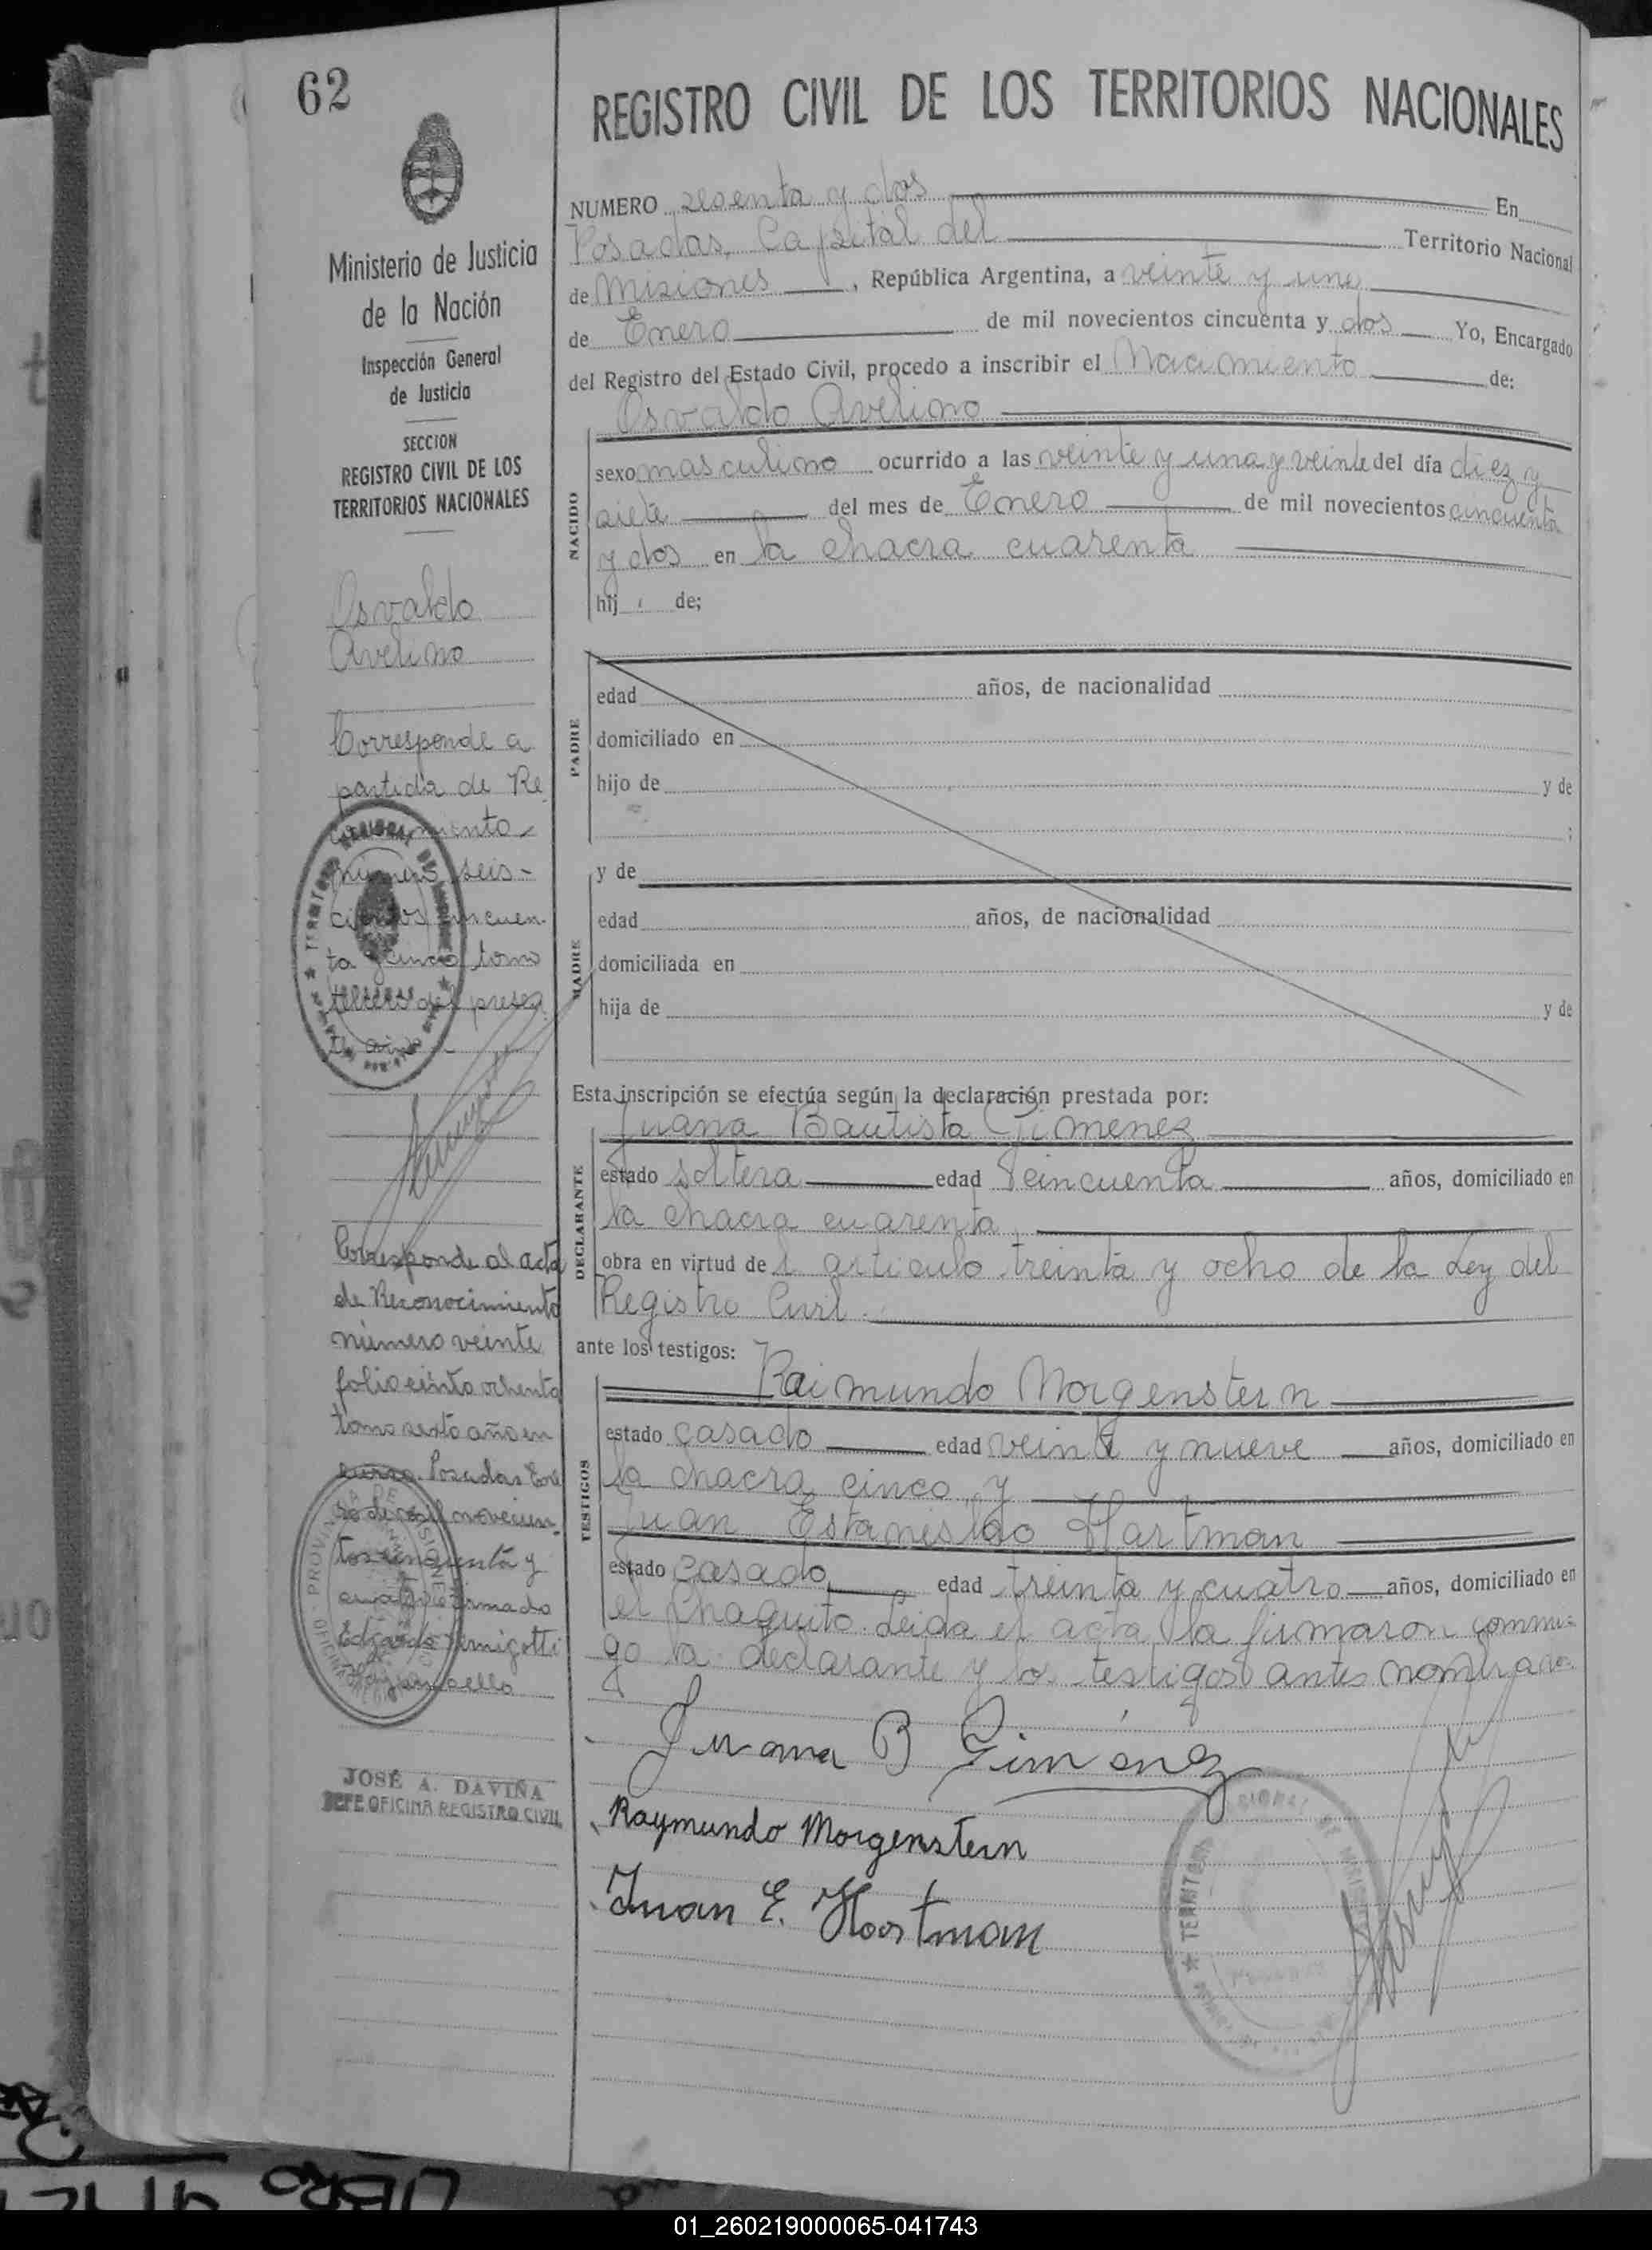 62
Ministerio de Justicia
de la Nación
Inspección General
de Justicia
SECCION
REGISTRO CIVIL DE LOS
TERRITORIOS NACIONALES
Osvaldo
Avelino
Corresponde a
partida de Re
número seis-
cientos cincuen-
ta y cinco tomo
tercero del presen
te año
Corresponde al acta
de Reconocimiento
número veinte
folio ciento ochenta
tomo sexto año en
curso. Posadas Ene
ro de mil novecien-
tos cincuenta y
Firmado
Edgardo
sello
JOSÉ A. DAVIÑA
JEFE OFICINA REGISTRO CIVIL
REGISTRO CIVIL DE LOS TERRITORIOS NACIONALES
NUMERO sesenta y dos En
Posadas, Capital del Territorio Nacional
de Misiones, República Argentina, a veinte y uno
de Enero de mil novecientos cincuenta y dos Yo, Encargado
del Registro del Estado Civil, procedo a inscribir el Nacimiento de:
Osvaldo Avelino
NACIDO
sexo masculino ocurrido a las veinte y una y veinte del día diez y
siete del mes de Enero de mil novecientos cincuenta
y dos en la chacra cuarenta
hij de;
PADRE
edad años, de nacionalidad
domiciliado en
hijo de y de
;
y de
MADRE
edad años, de nacionalidad
domiciliada en
hija de y de
Esta inscripción se efectúa según la declaración prestada por:
Juana Bautista Gimenez
DECLARANTE
estado soltera edad cincuenta años, domiciliado en
la chacra cuarenta
obra en virtud de l articulo treinta y ocho de la Ley del
Registro Civil.
ante los testigos:
Raimundo Morgenstern
TESTIGOS
estado casado edad veinte y nueve años, domiciliado en
la chacra cinco y
Juan Estanislao Hartman
estado casado edad treinta y cuatro años, domiciliado en
el Chaquito. Leida el acta la firmaron conmi-
go la declarante y los testigos antes nombrados
Juana B Giménez
Raymundo Morgenstern
Juan E. Hartman
01_260219000065-041743